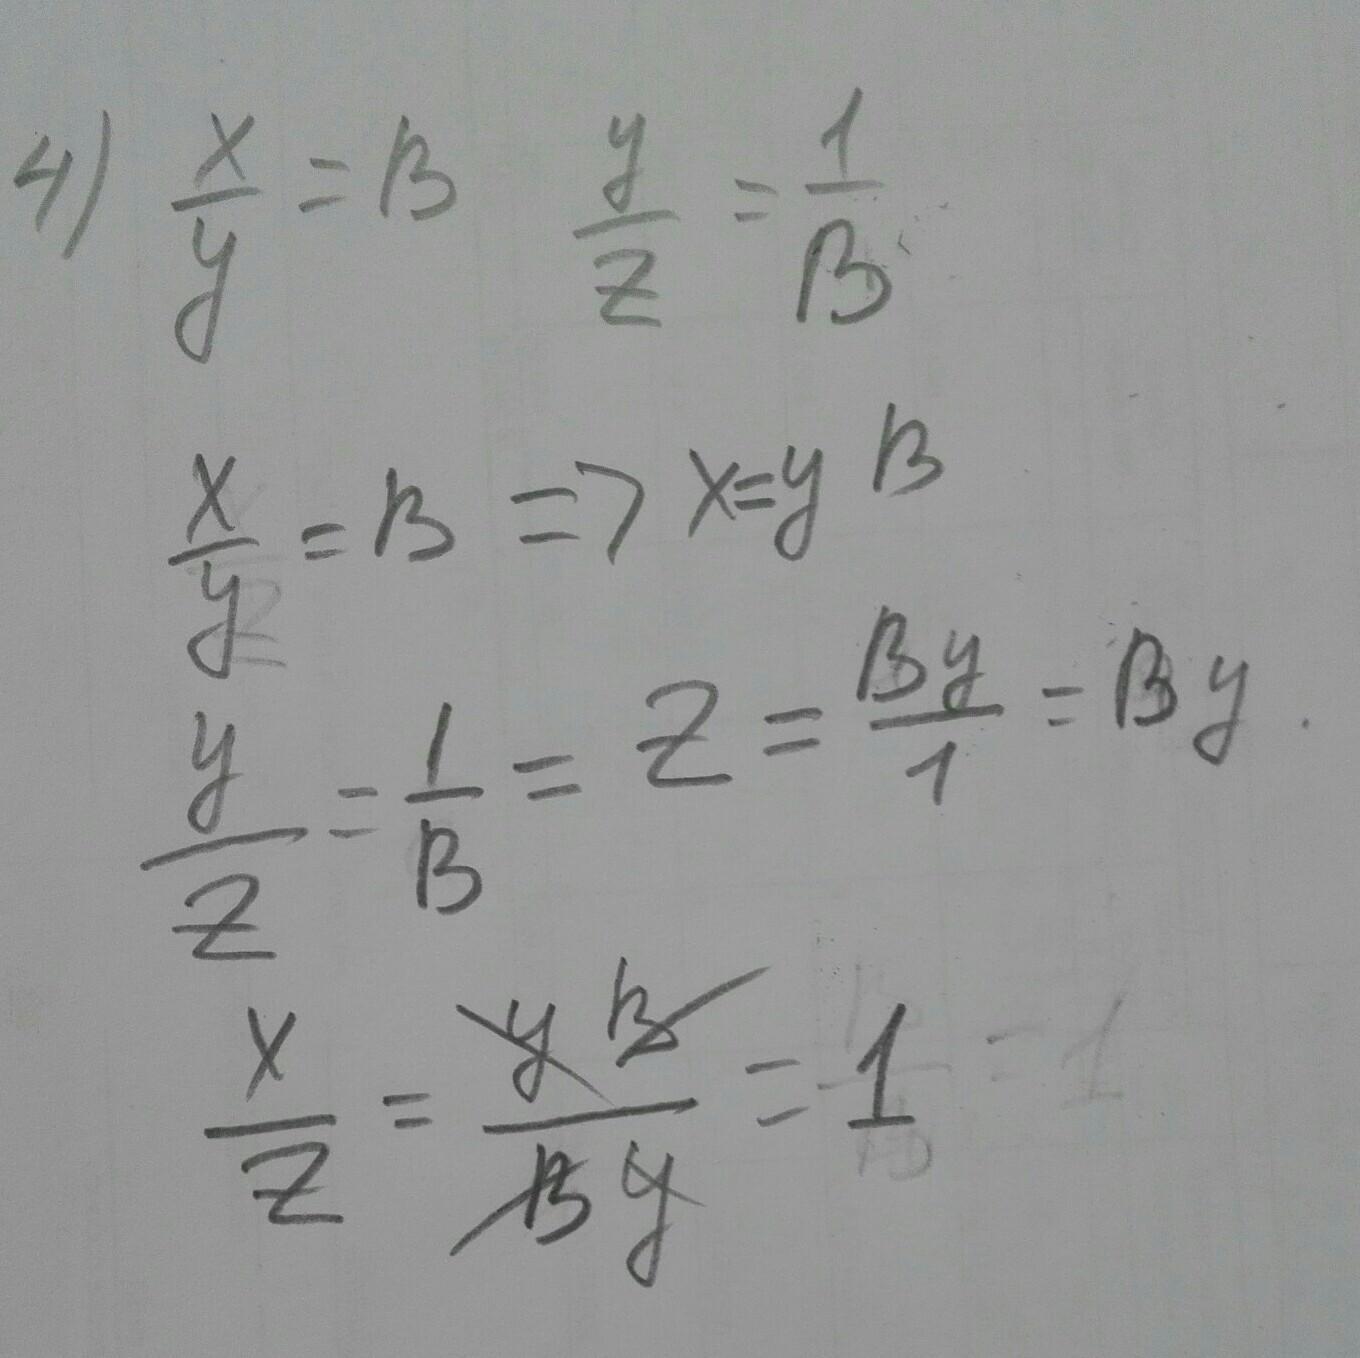 4) x/y = B y/z = 1/B
x/y = B => x=y B
y/z = 1/B = z = By/1 = By.
x/z = yB/By = 1